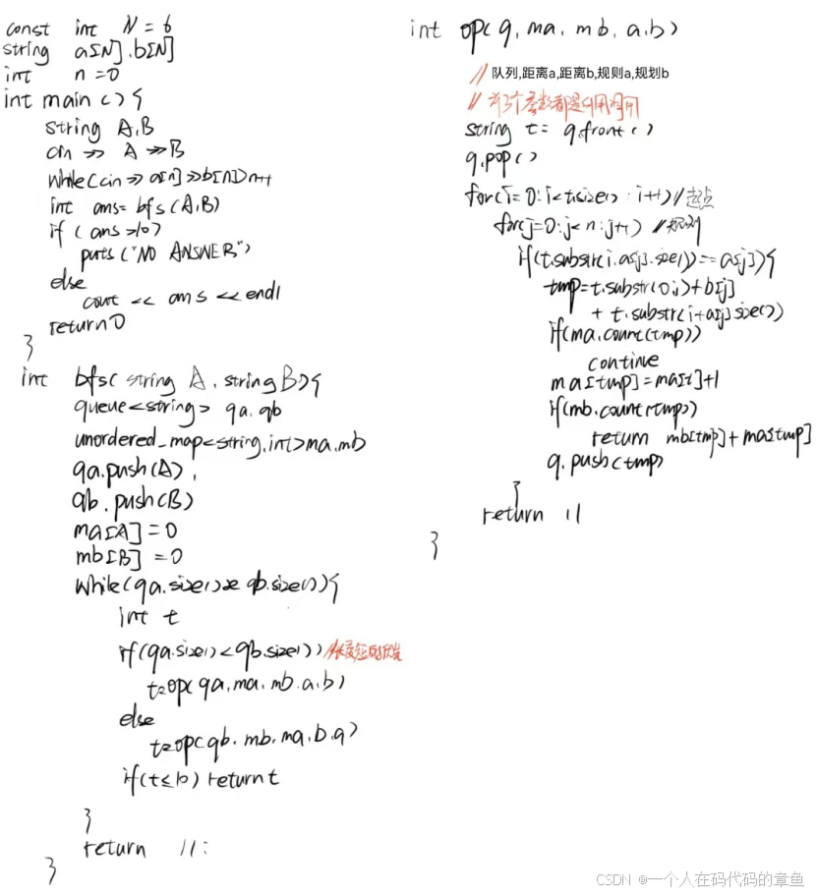 const int N = 6
string a[N].b[N]
int n=0
int main(){
string A,B
cin >> A >>B
while(cin >> a[n] >>b[n])n++
int ans= bfs(A,B)
if ( ans>10)
puts("NO ANSWER")
else
cout << ans <<endl
return 0
}
int bfs( string A, string B){
queue<string> qa.qb
unordered_map<string,int>ma,mb
qa.push(A),
qb.push(B)
ma[A]=0
mb[B] =0
while(qa.size()&&qb.size()){
int t
if(qa.size()<qb.size())
t=op(qa,ma,mb.a,b)
else
t=op(qb,mb,ma,b,a)
if(t≤10) return t
}
return 11:
}
int op( q, ma, mb, a,b)
// 队列,距离a,距离b,规则a,规划b
// 前3个参数都是引用调用
string t= q.front()
q.pop()
for(i=0:i<t.size() : i++)//起点
for(j=0:j<n:j++) //规则
if(t.substr(i,a[j].size())==a[j]){
tmp=t.substr(0,i)+b[j]
+ t.substr(i+a[j]size())
if(ma.count(tmp))
contine
ma[tmp]=ma[t]+1
if(mb.count(tmp))
return mb[tmp]+ma[tmp]
q.push(tmp)
}
return 11
}
CSDN @一个人在码代码的章鱼